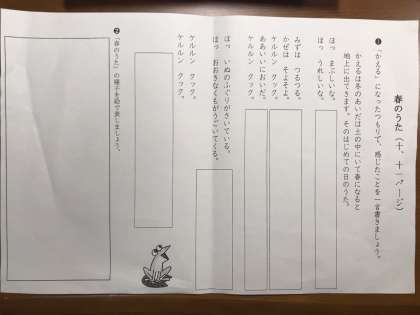 春のうた(十、十一ページ)
❶「かえる」になったつもりで、感じたことを一言書きましょう。
かえるは冬のあいだは土の中にいて春になると
地上に出てきます。そのはじめての日のうた。
ほっ まぶしいな。
ほっ うれしいな。
みずは つるつる。
かぜは そよそよ。
ケルルン クック。
ああいいにおいだ。
ケルルン クック。
ほっ いぬのふぐりがさいている。
ほっ おおきなくもがうごいてくる。
ケルルン クック。
ケルルン クック。
❷「春のうた」の様子を絵で表しましょう。